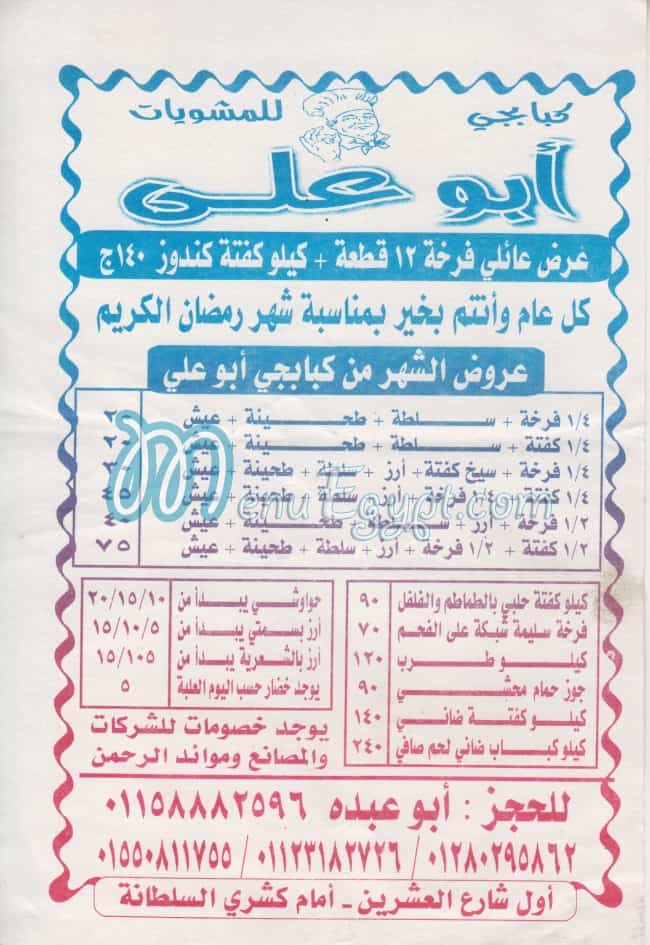 كبابجي للمشويات
أبو على
عرض عائلي فرخة ١٢ قطعة + كيلو كفتة كندوز ١٤٠ج
كل عام وأنتم بخير بمناسبة شهر رمضان الكريم
عروض الشهر من كبابجي أبو علي
١/٤ فرخة + سلطة + طحينة + عيش
١/٤ كفتة + سلطة + طحينة + عيش
١/٤ فرخة + سيخ كفتة + أرز + سلطة + طحينة + عيش
١/٤ كفتة + ١/٤ فرخة + أرز + سلطة + طحينة + عيش ٤٥
١/٢ فرخة + أرز + سلطة + طحينة + عيش
١/٢ كفتة + ١/٢ فرخة + أرز + سلطة + طحينة + عيش ٧٥
MenuEgypt.com
كيلو كفتة حلبي بالطماطم والفلفل ٩٠
فرخة سليمة شبكة على الفحم ٧٠
كيلو طرب ١٢٠
جوز حمام محشي ٩٠
كيلو كفتة ضاني ١٤٠
كيلو كباب ضاني لحم صافي ٢٤٠
حواوشي يبدأ من ٢٠/١٥/١٠
أرز بسمتي يبدأ من ١٥/١٠/٥
أرز بالشعرية يبدأ من ١٥/١٠٥
يوجد خضار حسب اليوم العلبة ٥
يوجد خصومات للشركات
والمصانع وموائد الرحمن
للحجز : أبو عبده ٠١١٥٨٨٨٢٥٩٦
٠١٢٨٠٢٩٥٨٦٢ / ٠١١٢٣١٨٢٧٢٦ / ٠١٥٥٠٨١١٧٥٥
أول شارع العشرين - أمام كشري السلطانة